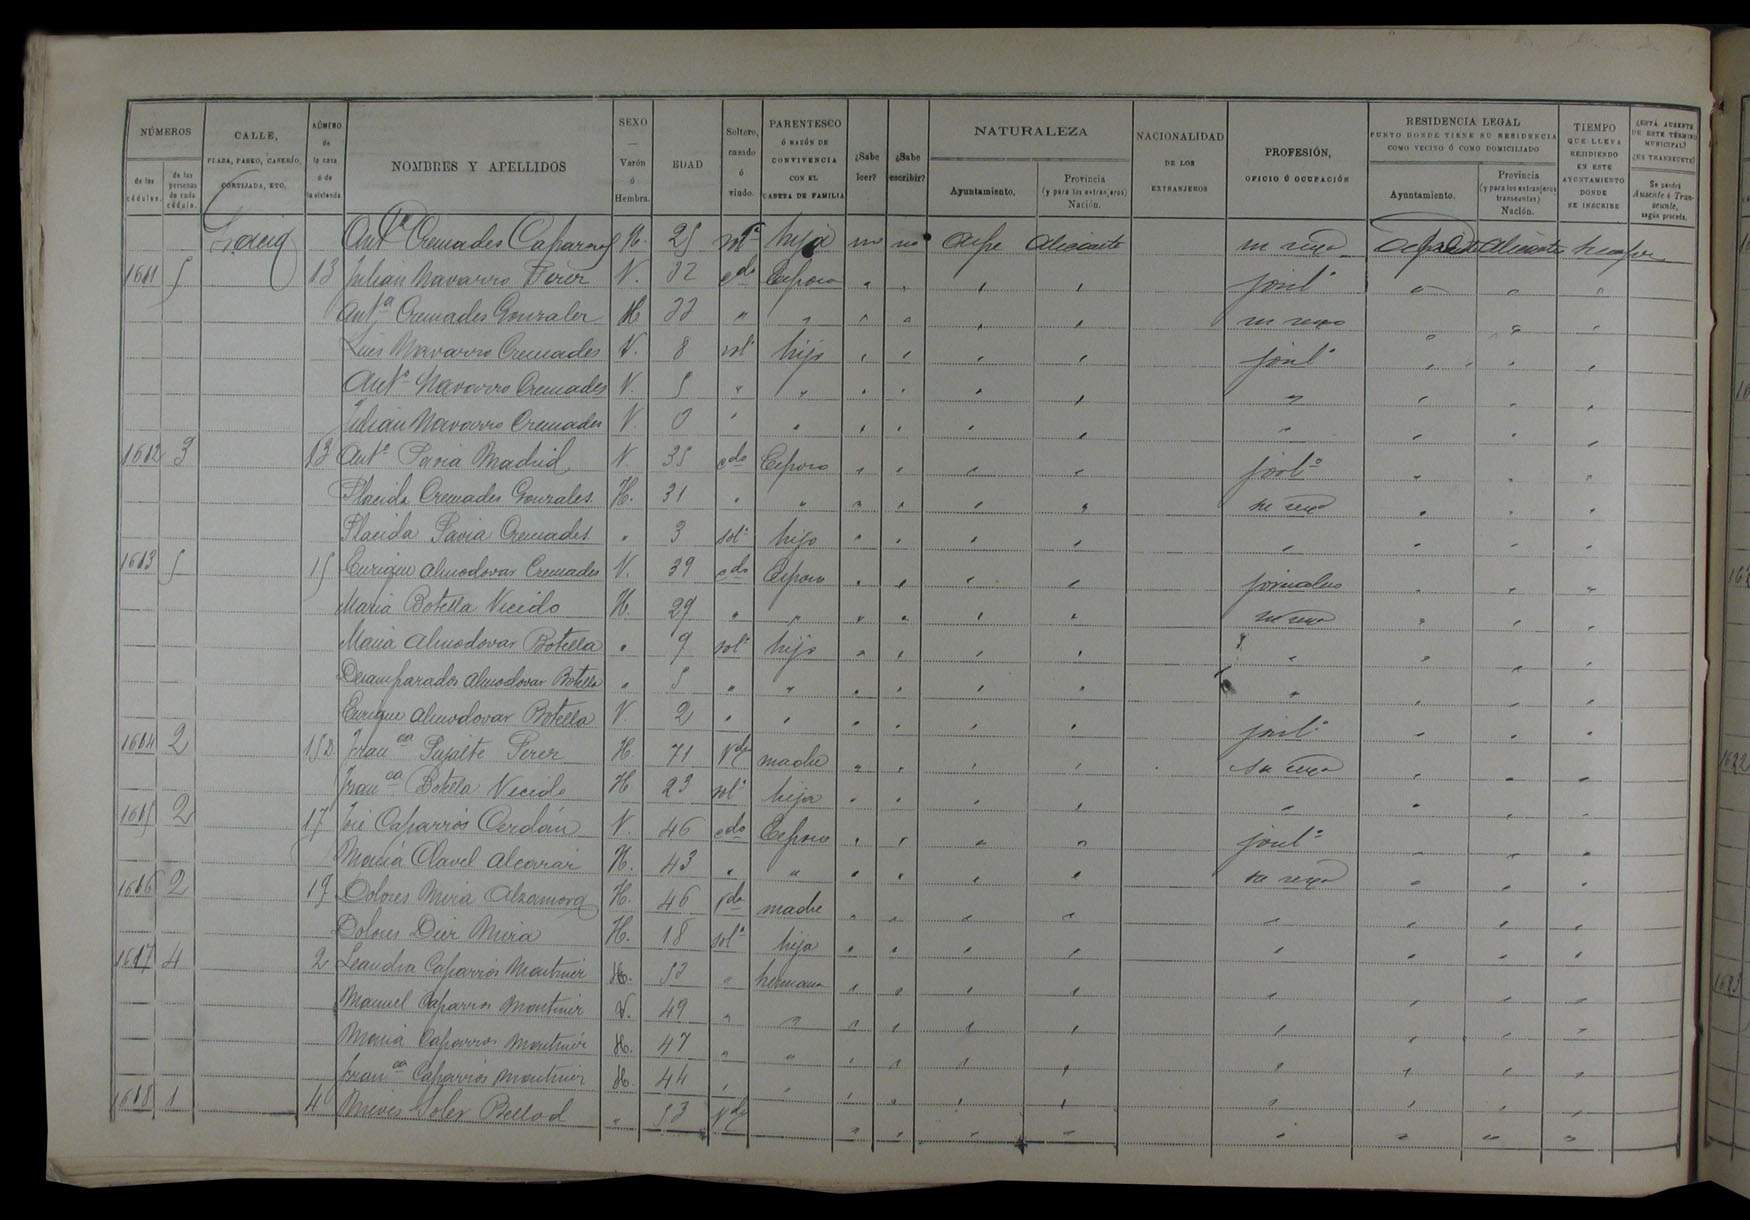 NÚMEROS | CALLE, PLAZA, PASEO, CASERÍO, CORTIJADA, ETC. | NÚMERO de la casa ó de la vivienda | NOMBRES Y APELLIDOS | SEXO — Varón ó Hembra. | EDAD | Soltero, casado ó viudo. | PARENTESCO Ó RAZÓN DE CONVIVENCIA CON EL CABEZA DE FAMILIA | ¿Sabe leer? | ¿Sabe escribir? | NATURALEZA | NACIONALIDAD DE LOS EXTRANJEROS | PROFESIÓN, OFICIO Ú OCUPACIÓN | RESIDENCIA LEGAL PUNTO DONDE TIENE SU RESIDENCIA COMO VECINO Ó COMO DOMICILIADO | TIEMPO QUE LLEVA RESIDIENDO EN ESTE AYUNTAMIENTO DONDE SE INSCRIBE | ¿ESTÁ AUSENTE DE ESTE TÉRMINO MUNICIPAL? ¿ES TRANSEUNTE?
de las cédulas. | de las personas de cada cédula. | Ayuntamiento. | Provincia (y para los extranjeros) Nación. | Ayuntamiento. | Provincia (y para los extranjeros transeuntes) Nación. | Se pondrá Ausente ó Transeunte, según proceda.
Antª Cremades Caparros H. 25 solª hija no no Aspe Alicante su sexo Alicante
1611 5 13 Julian Navarro Perez V. 32 cdo Esposo " " " " jornlº " " "
Antª Cremades Gonzalez H 33 " " " " " " su sexo " " "
Luis Navarro Cremades V. 8 solº hijo " " " " jornlº " " "
Antº Navarro Cremades V. 5 " " " " " " " " " "
Julian Navarro Cremades V. 0 " " " " " " " " " "
1612 3 13 Antº Pavia Madrid V. 35 cdo Esposo " " " " jornlº " " "
Placida Cremades Gonzales H. 31 " " " " " " su sexo " " "
Placida Pavia Cremades " 3 solª hijo " " " " " " " "
1613 5 15 Enrique Almodovar Cremades V. 39 cdo Esposo " " " " jornalero " " "
Maria Botella Vicedo H. 29 " " " " " " su sexo " " "
Maria Almodovar Botella " 9 solª hijo " " " " " " " "
Desamparados Almodovar Botella " 5 " " " " " " " " " "
Enrique Almodovar Botella V. 2 " " " " " " jornlº " " "
1614 2 15 Franca Pujalte Perez H. 71 Vda madre " " " " su sexo " " "
Franca Botella Vicedo H 23 solª hija " " " " " " " "
1615 2 17 José Caparrós Cerdán V. 46 cdo Esposo " " " " jornlº " " "
Maria Clavel Alcaraz H. 43 " " " " " " su sexo " " "
1616 2 19 Dolores Mira Alzamora H. 46 Vda madre " " " " " " " "
Dolores Diez Mira H. 18 solª hija " " " " " " " "
1617 4 2 Leandra Caparrós H. 53 " hermana " " " " " " " "
Manuel Caparros V. 49 " " " " " " " " " "
Maria Caparros H. 47 " " " " " " " " " "
Franca Caparrós H. 44 " " " " " " " " " "
1618 1 4 Nieves Soler Bellod " 53 Vda " " " " " " " "